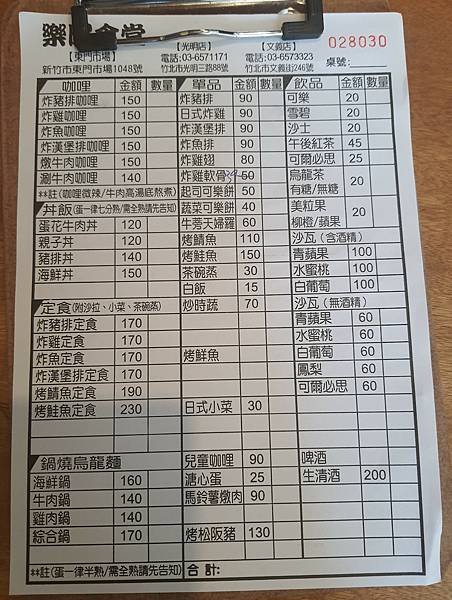 樂 食堂
【東門市場】 【光明店】 【文義店】
電話:03-6571171 電話:03-6573323 028030
新竹市東門市場1048號 竹北市光明三路88號 竹北市文義街246號 桌號:
咖哩 金額 數量 單品 金額 數量 飲品 金額 數量
炸豬排咖哩 150 炸豬排 90 可樂 20
炸雞咖哩 150 日式炸雞 90 雪碧 20
炸魚咖哩 150 炸漢堡排 90 沙士 20
炸漢堡排咖哩 150 炸魚排 90 午後紅茶 45
燉牛肉咖哩 150 炸雞翅 80 可爾必思 25
涮牛肉咖哩 140 炸雞軟骨 50 烏龍茶 有糖/無糖 20
**註(咖哩微辣/牛肉高湯底熬煮) 起司可樂餅 50
丼飯(蛋一律七分熟/需全熟請先告知) 蔬菜可樂餅 40 美粒果 柳橙/蘋果 20
蛋花牛肉丼 120 牛旁天婦羅 60
親子丼 120 烤鯖魚 110 沙瓦(含酒精)
豬排丼 140 烤鮭魚 150 青蘋果 100
海鮮丼 150 茶碗蒸 30 水蜜桃 100
白飯 15 白葡萄 100
定食(附沙拉、小菜、茶碗蒸) 炒時蔬 70 沙瓦(無酒精)
炸豬排定食 170 青蘋果 60
炸雞定食 170 水蜜桃 60
炸魚定食 170 烤鮮魚 白葡萄 60
炸漢堡排定食 170 鳳梨 60
烤鯖魚定食 190 可爾必思 60
烤鮭魚定食 230 日式小菜 30
鍋燒烏龍麵 兒童咖哩 90 啤酒
海鮮鍋 160 溏心蛋 25 生清酒 200
牛肉鍋 140 馬鈴薯燉肉 90
雞肉鍋 140
綜合鍋 170 烤松阪豬 130
**註(蛋一律半熟/需全熟請先告知) 合計: